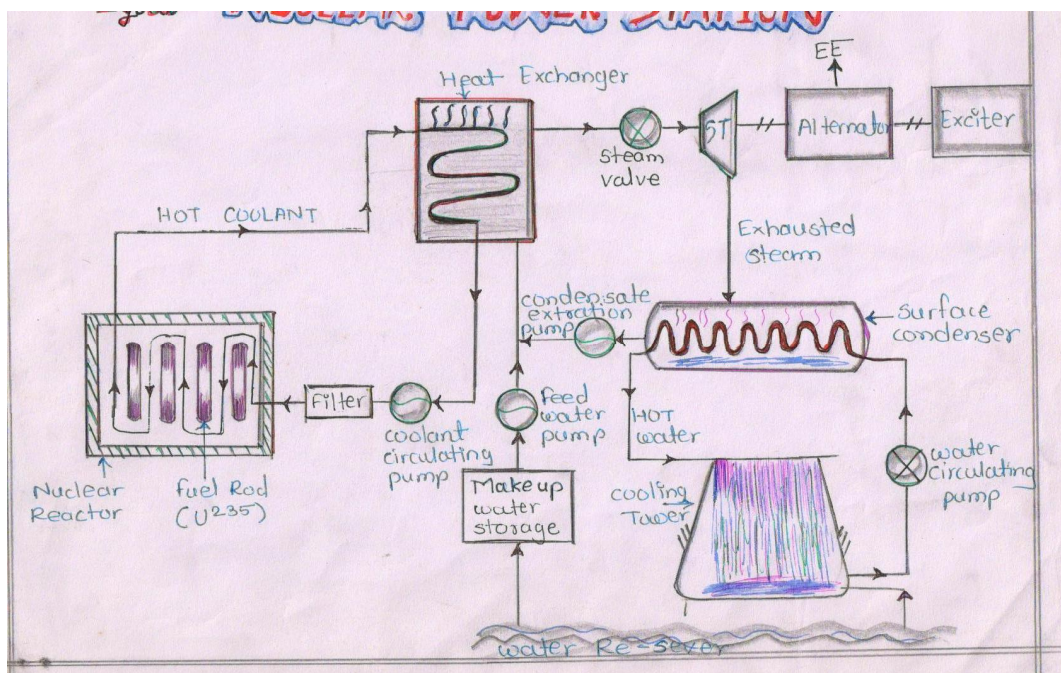 NUCLEAR POWER STATION
EE
Heat Exchanger
ST
Alternator
Exciter
steam
valve
HOT COOLANT
Exhausted
steam
condensate
extration
pump
surface
condenser
Filter
coolant
circulating
pump
feed
water
pump
HOT
water
water
circulating
pump
Nuclear
Reactor
fuel Rod
(U235)
Make up
water
storage
cooling
Tower
water Re-sever